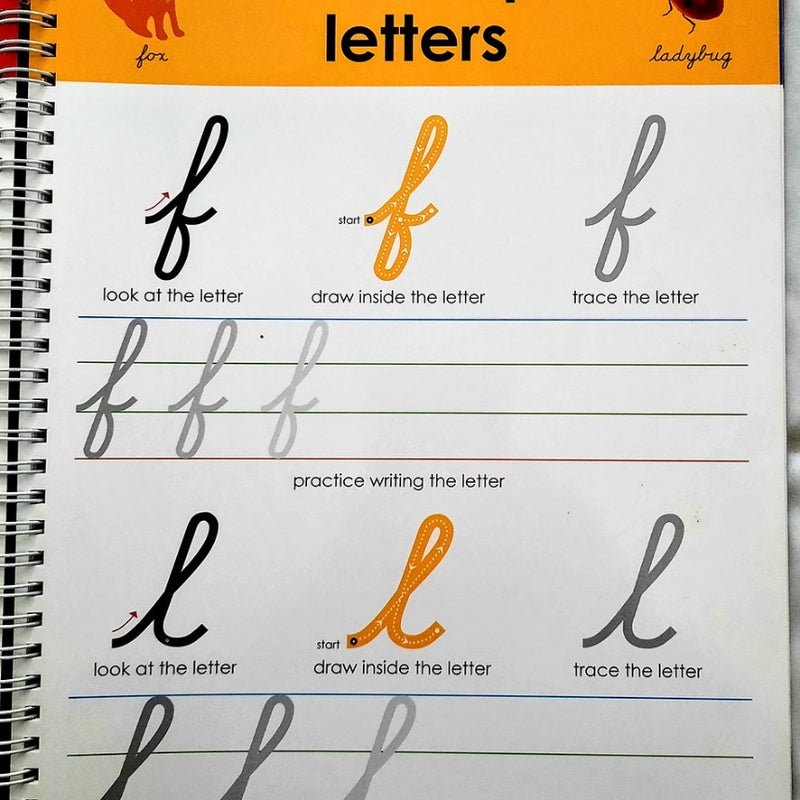 letters
fox
ladybug
f
start
f
f
look at the letter
draw inside the letter
trace the letter
f f f
practice writing the letter
l
start
l
l
look at the letter
draw inside the letter
trace the letter
l l l